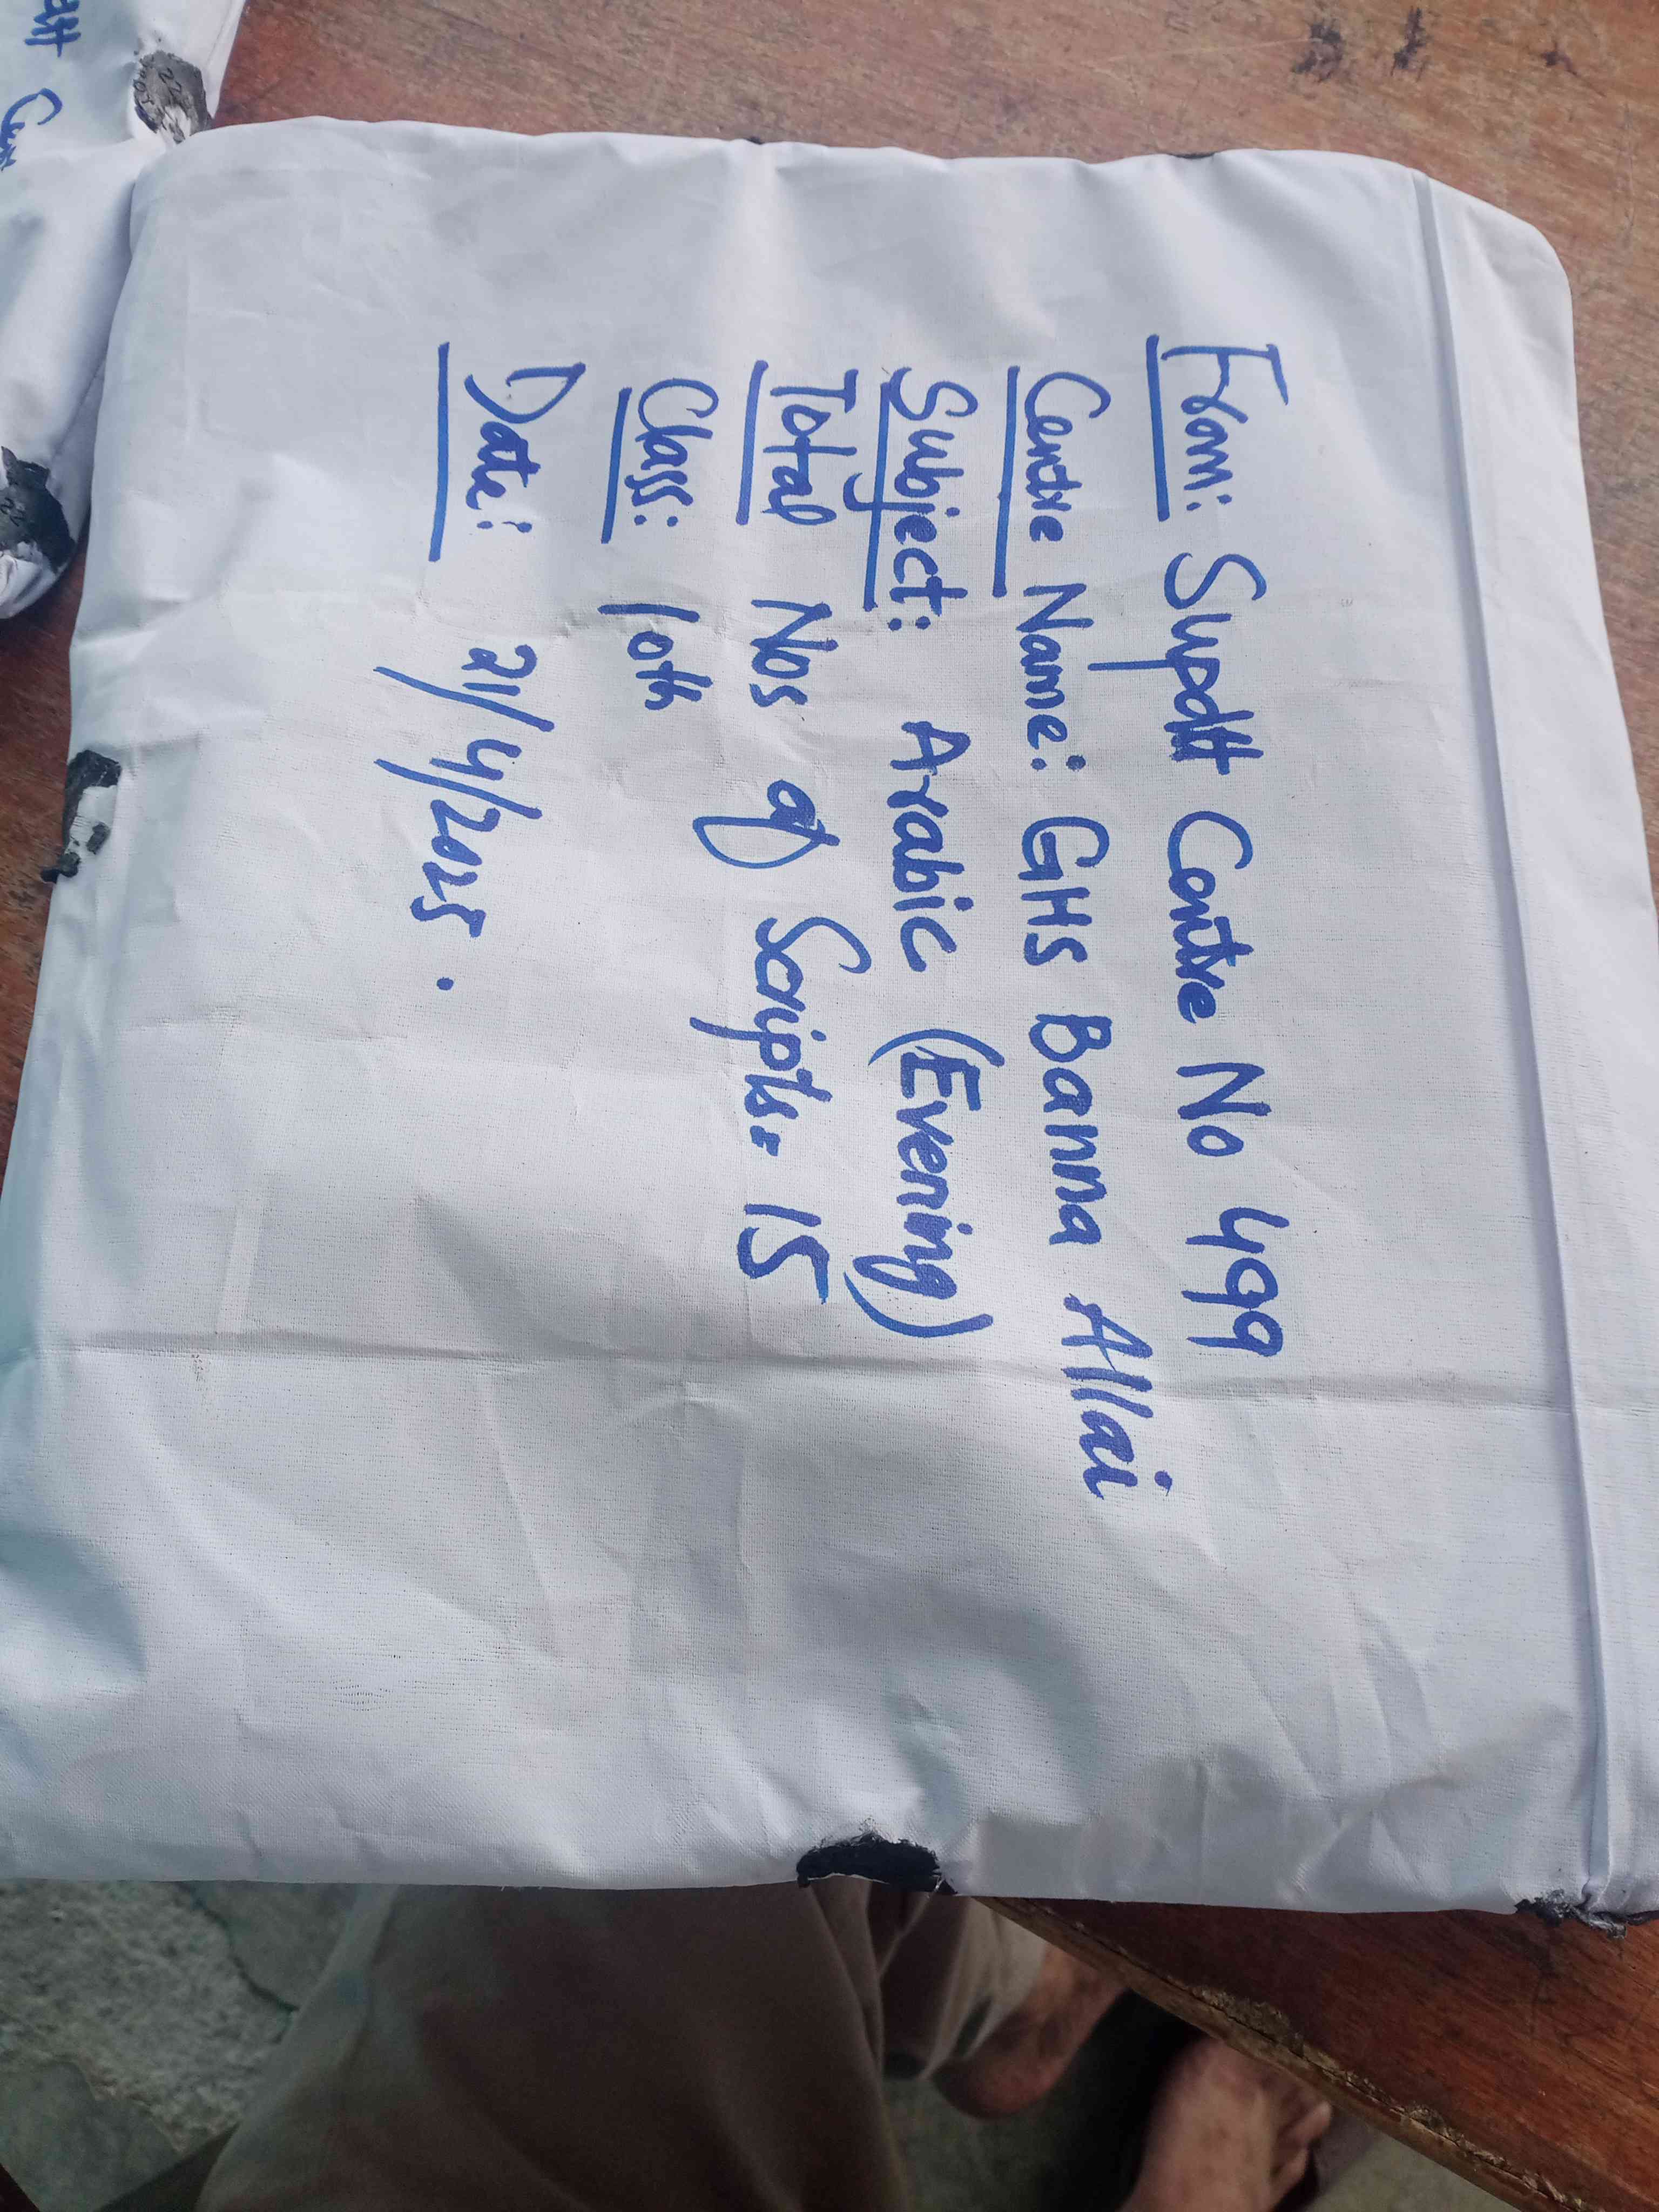 From: Supdtt Centre No 499
Centre Name: GHS Banna Allai
Subject: Arabic (Evening)
Total Nos of Scripts = 15
Class: 10th
Date: 21/4/2025.